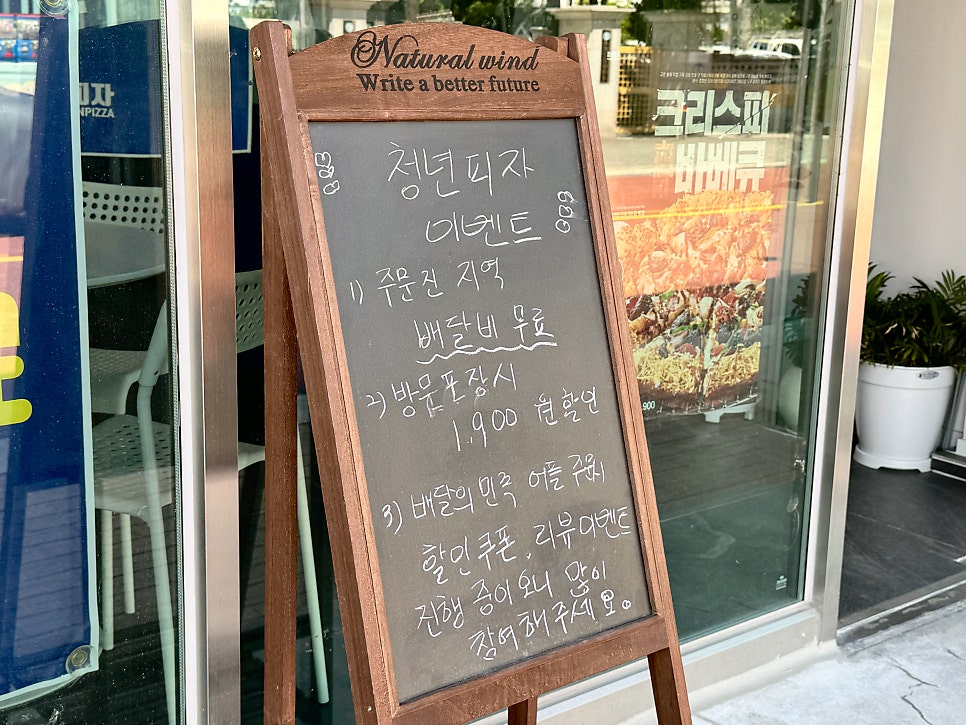 Natural wind
Write a better future
청년피자
이벤트
1) 주문진 지역
배달비 무료
2) 방문포장시
1,900 원 할인
3) 배달의민족 어플 주문시
할인쿠폰, 리뷰이벤트
진행 중이오니 많이
참여해주세요.
피자
NPIZZA
크리스피
900